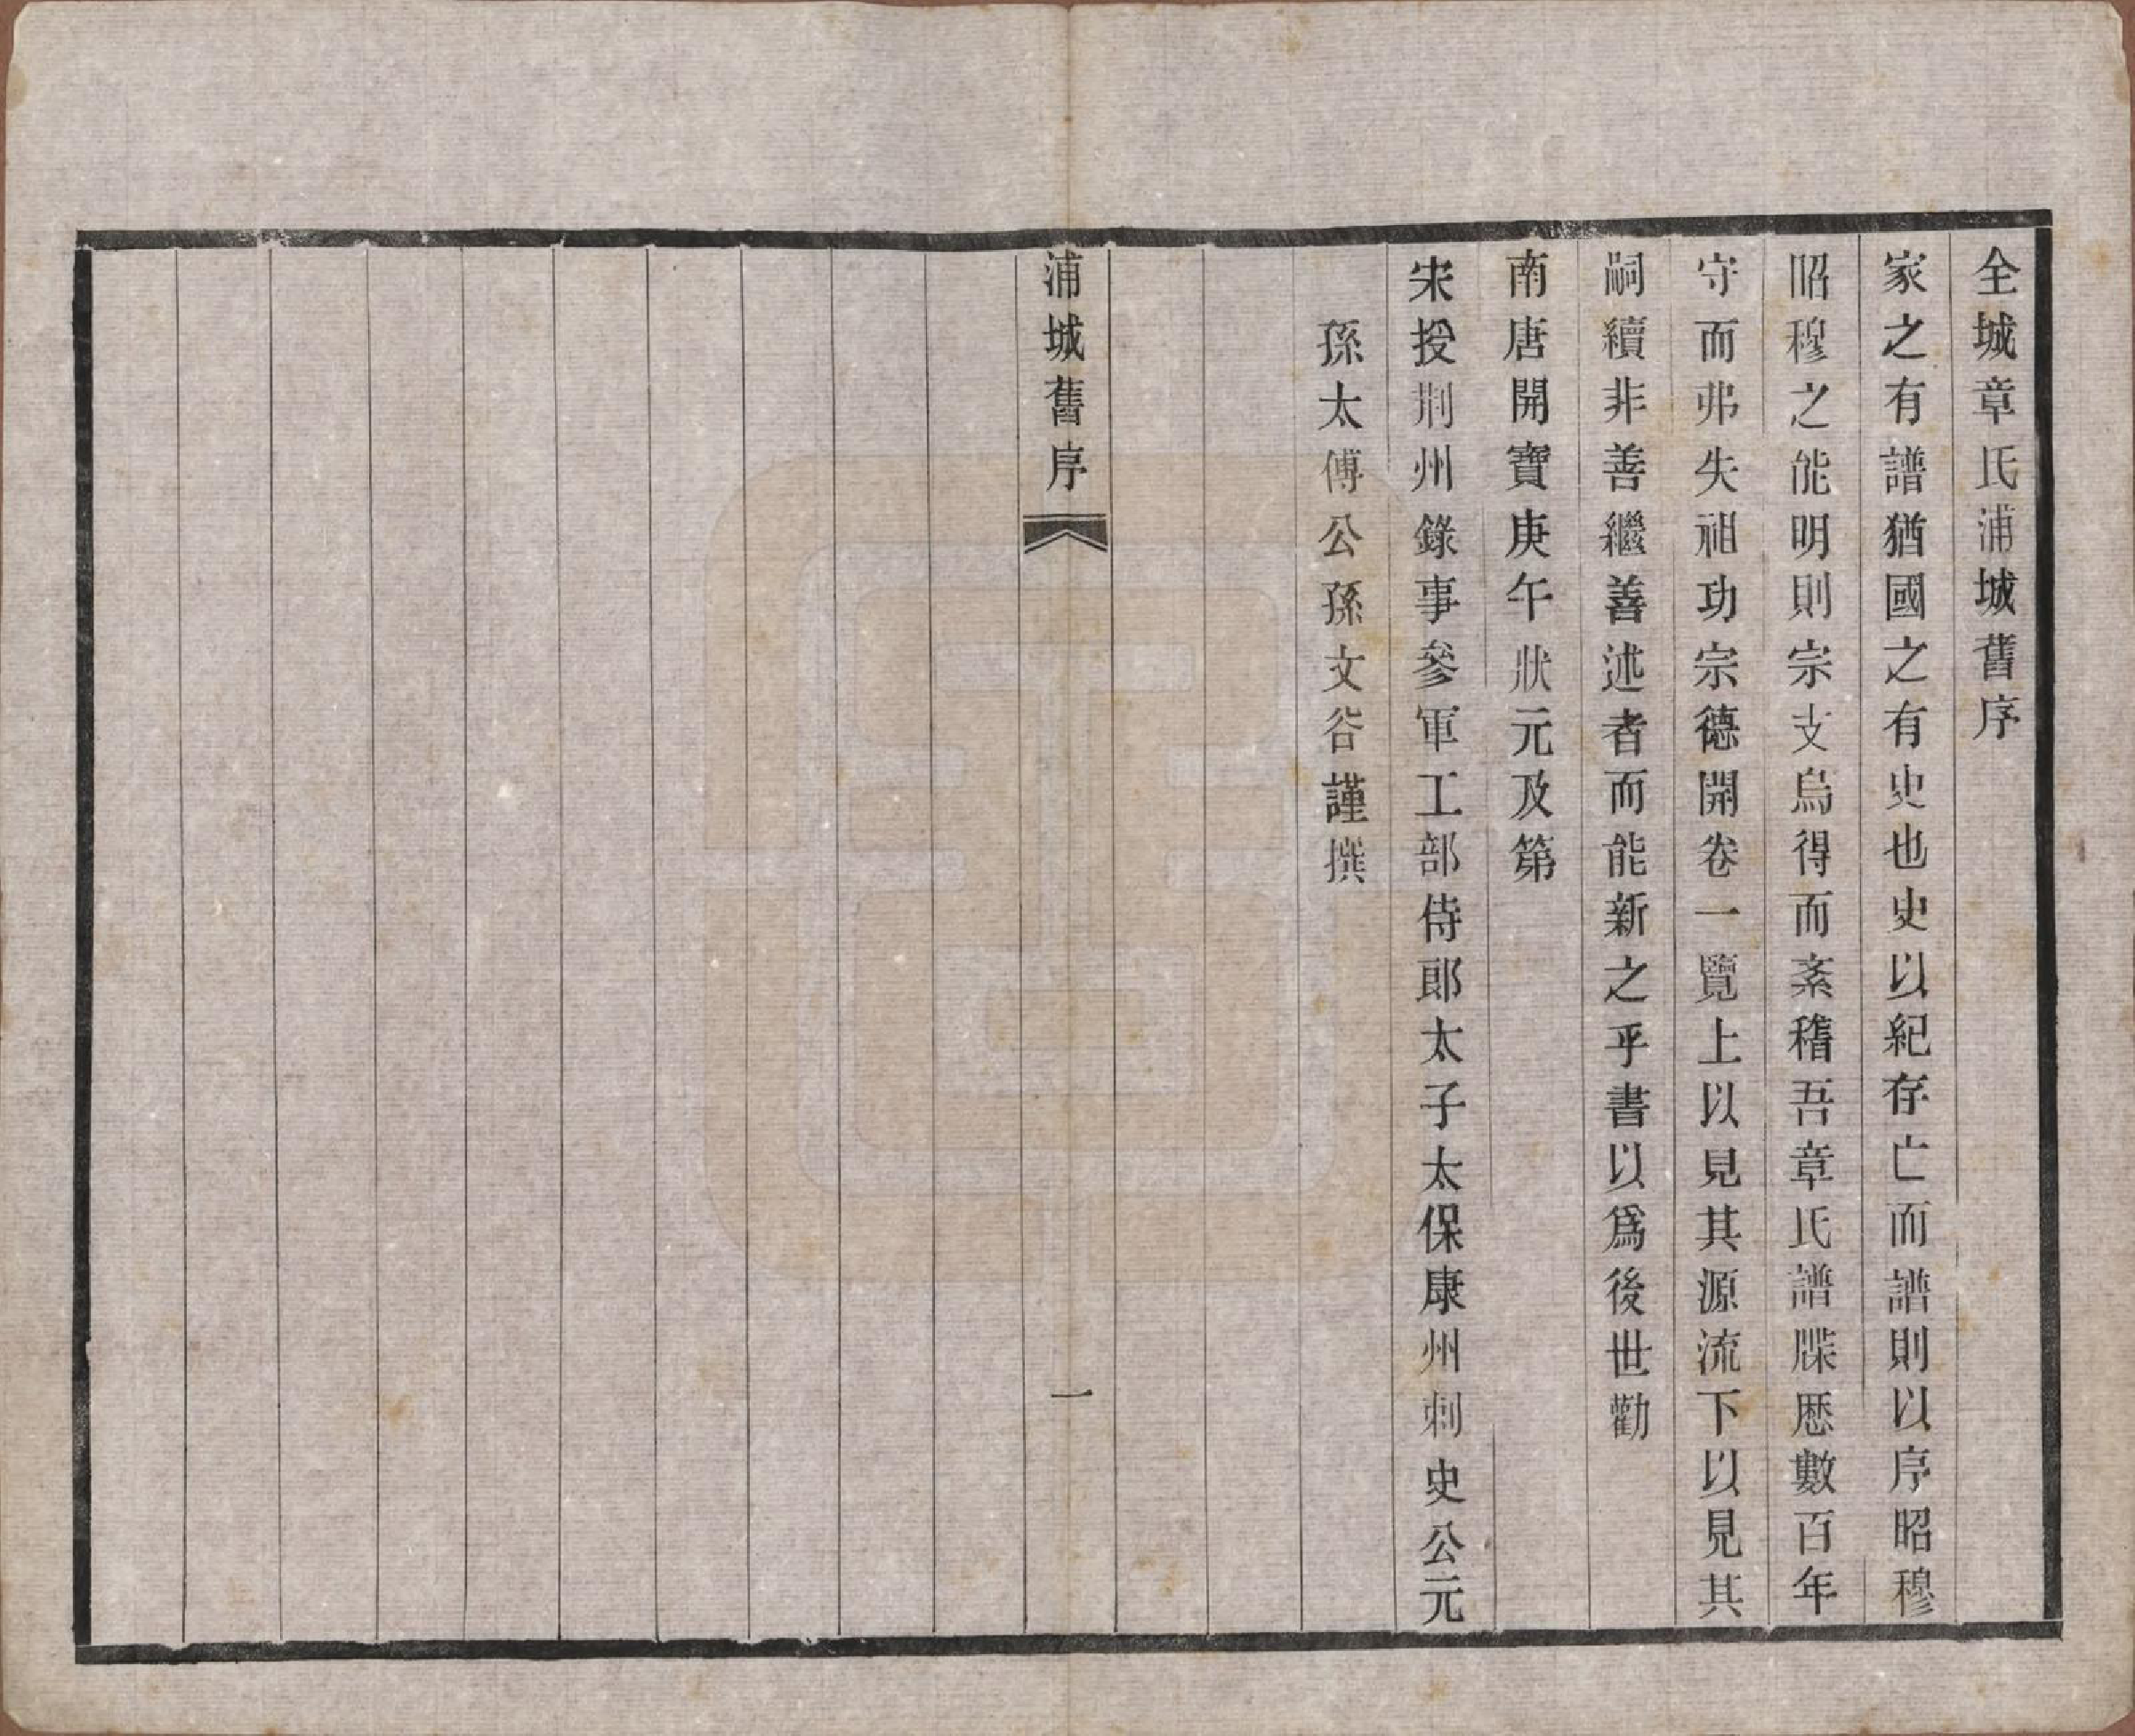 全城章氏浦城舊序
家之有譜猶國之有史也史以紀存亡而譜則以序昭穆
昭穆之能明則宗支烏得而紊稽吾章氏譜牒歷數百年
守而弗失祖功宗德開卷一覽上以見其源流下以見其
嗣續非善繼善述者而能新之乎書以爲後世勸
南唐開寶庚午狀元及第
宋授荆州錄事參軍工部侍郎太子太保康州刺史公元
孫太傅公孫文谷謹撰
浦城舊序
一